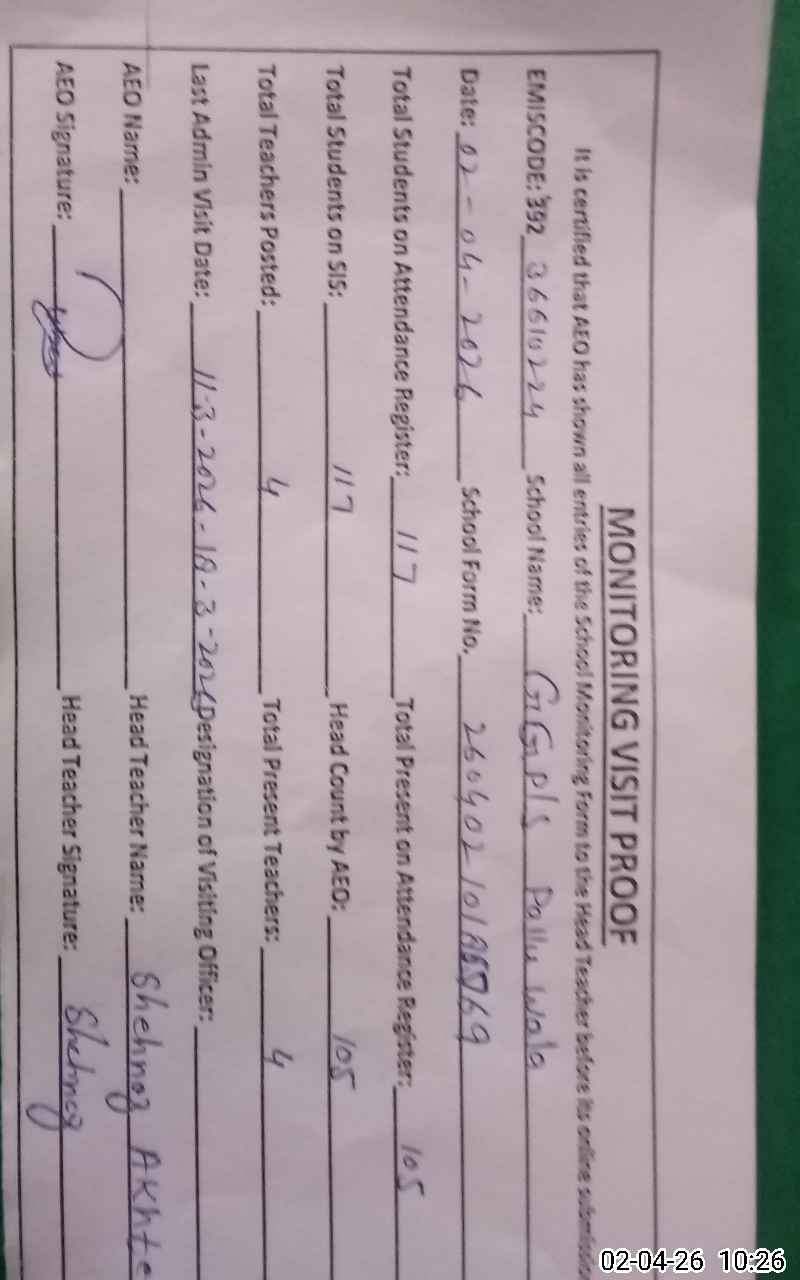 MONITORING VISIT PROOF
It is certified that AEO has shown all entries of the School Monitoring Form to the Head Teacher before its online submission
EMISCODE: 392 36610224 School Name: GGPIS Pallu Wala
Date: 02-04-2026 School Form No. 260402101AE5769
Total Students on Attendance Register: 117 Total Present on Attendance Register: 105
Total Students on SIS: 117 Head Count by AEO: 105
Total Teachers Posted: 4 Total Present Teachers: 4
Last Admin Visit Date: 11-3-2026-18-3-2026 Designation of Visiting Officer:
AEO Name: Head Teacher Name: Shehnaz Akhte
AEO Signature: Head Teacher Signature: Shehnaz
02-04-26 10:26